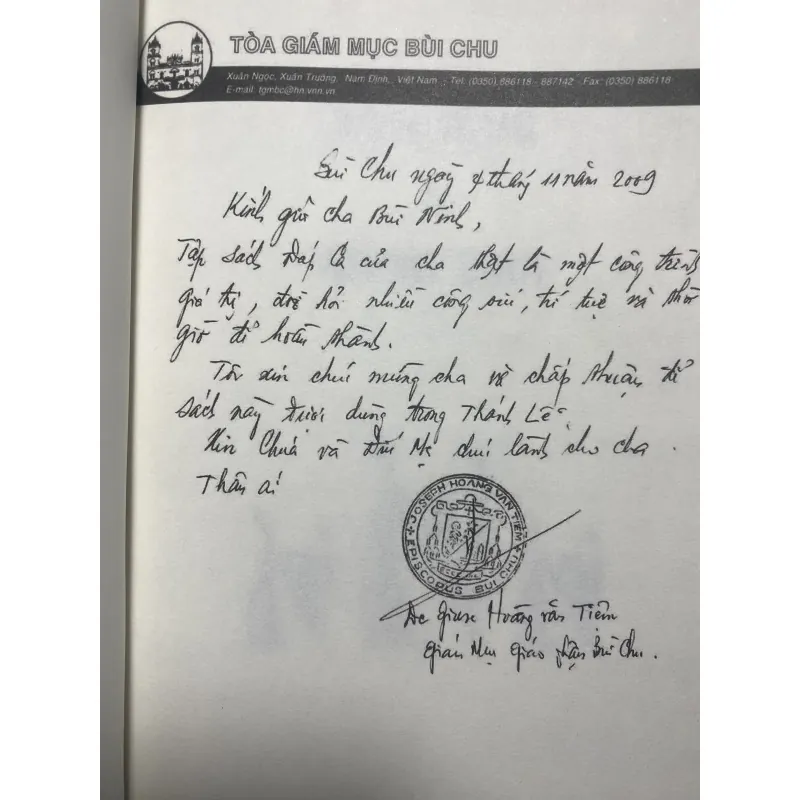 TÒA GIÁM MỤC BÙI CHU
Xuân Ngọc, Xuân Trường, Nam Định, Việt Nam - Tel: (0350) 886118 - 887142 - Fax: (0350) 886118
E-mail: tgmbc@hn.vnn.vn
Bùi Chu ngày 4 tháng 11 năm 2009
Kính gửi cha Bùi Ninh,
Tập sách Đáp Ca của cha thật là một công trình
giá trị, đòi hỏi nhiều công sức, trí tuệ và thời
giờ để hoàn thành.
Tôi xin chúc mừng cha và chấp thuận để
sách này được dùng trong Thánh Lễ.
Xin Chúa và Đức Mẹ chúc lành cho cha.
Thân ái
JOSEPH HOANG VAN TIEM
EPISCOPUS BUI CHU
Đc Giuse Hoàng văn Tiệm
Giám Mục Giáo phận Bùi Chu.